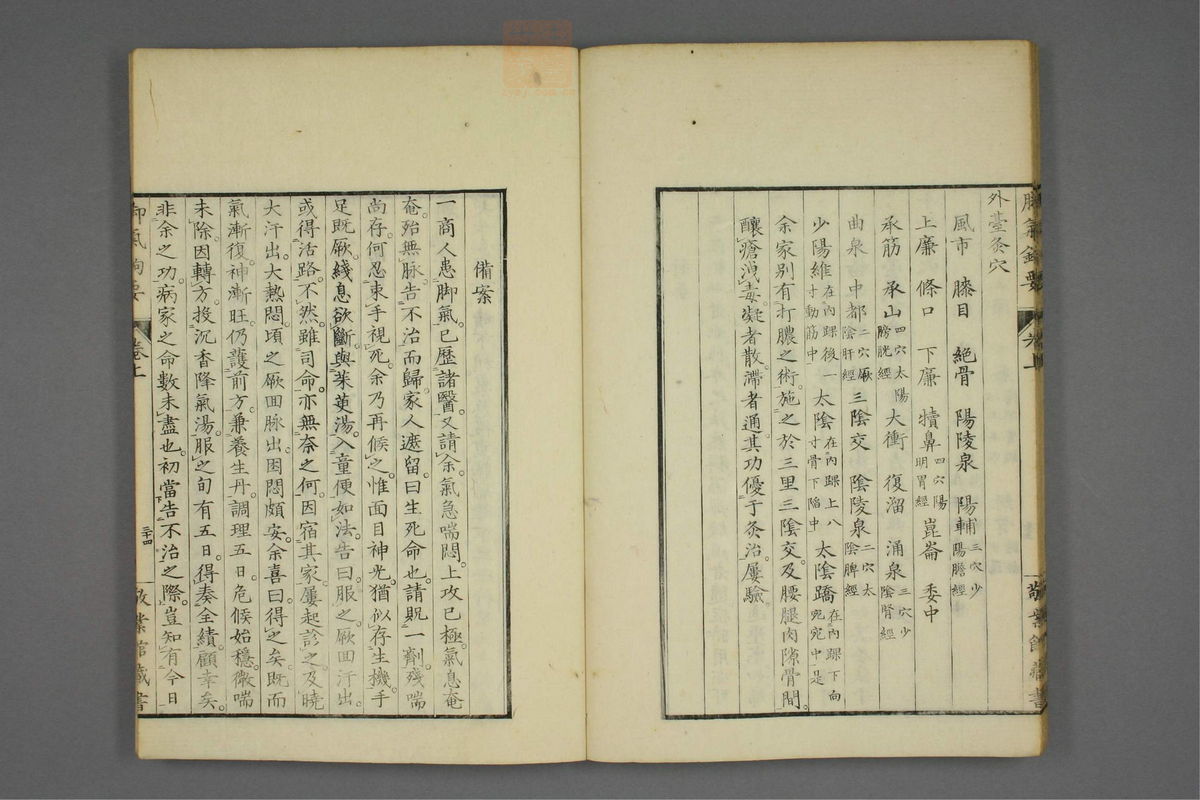 外臺灸穴
風市 膝目 絕骨 陽陵泉 陽輔三穴少陽膽經
上廉 條口 下廉 犢鼻四穴陽明胃經 崑崙 委中
承筋 承山四穴太陽膀胱經 大衝 復溜 涌泉三穴少陰腎經
曲泉 中都二穴厥陰肝經 三陰交 陰陵泉二穴太陰脾經
少陽維在內踝後一寸動筋中 太陰在內踝上八寸骨下陷中 太陰蹻在內踝下向宛宛中是
余家別有打膿之術施之於三里三陰交及腰腿肉隙骨間
釀瘡洩毒凝者散滯者通其功優于灸治屢驗
卷上
備案
一商人患脚氣已歷諸醫又請余氣急喘悶上攻已極氣息奄
奄殆無脉告不治而歸家人遮留曰生死命也請貺一劑殘喘
尚存何忍束手視死余乃再候之惟面目神光猶似存生機手
足既厥綫息欲斷與茱萸湯入童便如法告曰服之厥回汗出
或得活路不然雖司命亦無奈之何因宿其家屢起診之及曉
大汗出大熱悶頃之厥回脉出困悶頗安余喜曰得之矣既而
氣漸復神漸旺仍護前方兼養生丹調理五日危候始穩微喘
未除因轉方投沉香降氣湯服之旬有五日得奏全績顧幸矣
非余之功病家之命數未盡也初當告不治之際豈知有今日
卷上
三十四